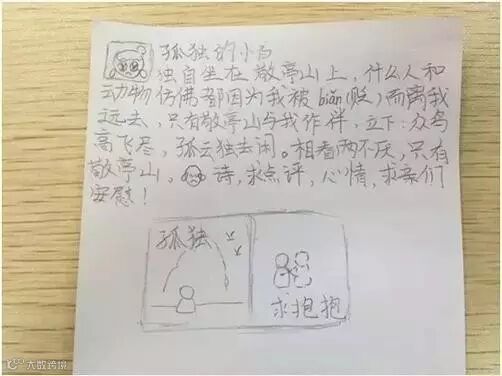 孤独的小白
独自坐在敬亭山上，什么人和
动物仿佛都因为我被biǎn(贬)而离我
远去，只有敬亭山与我作伴，立下：众鸟
高飞尽，孤云独去闲。相看两不厌，只有
敬亭山。诗，求点评，心情，求亲们
安慰！
孤独
求抱抱
大数跨境